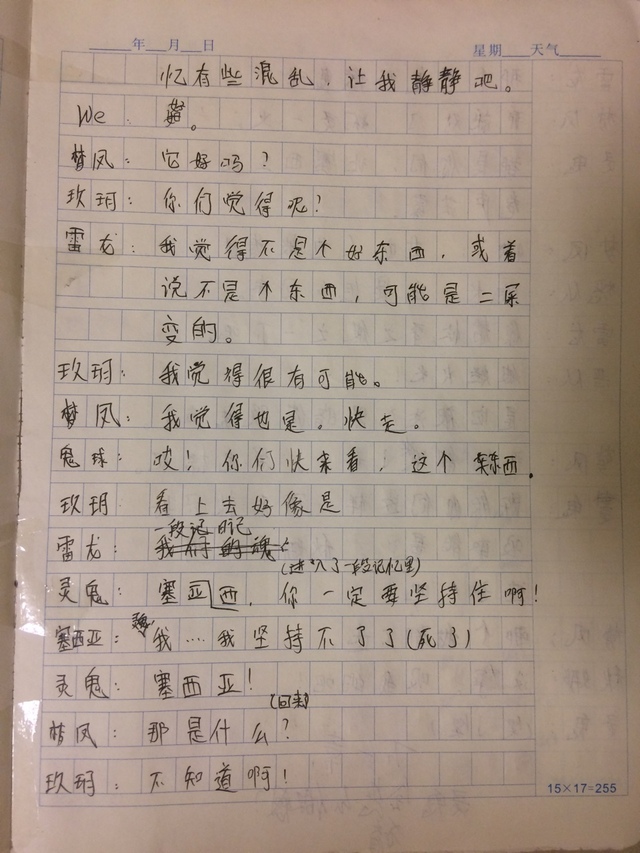 年 月 日 星期 天气
忆有些混乱，让我静静吧。
We：
梦凤：它好吗？
玖玥：你们觉得呢？
雷龙：我觉得不是个好东西，或着
说不是个东西，可能是二尿
变的。
玖玥：我觉得很有可能。
梦凤：我觉得也是。快走。
鬼球：哎！你们快来看，这个东西。
玖玥：看上去好像是
一段记 日记
雷龙：
(进入了一段记忆里)
灵鬼：塞亚西，你一定要坚持住啊！
塞西亚：我……我坚持不了了(死了)
灵鬼：塞西亚！
(回来)
梦凤：那是什么？
玖玥：不知道啊！
15×17=255